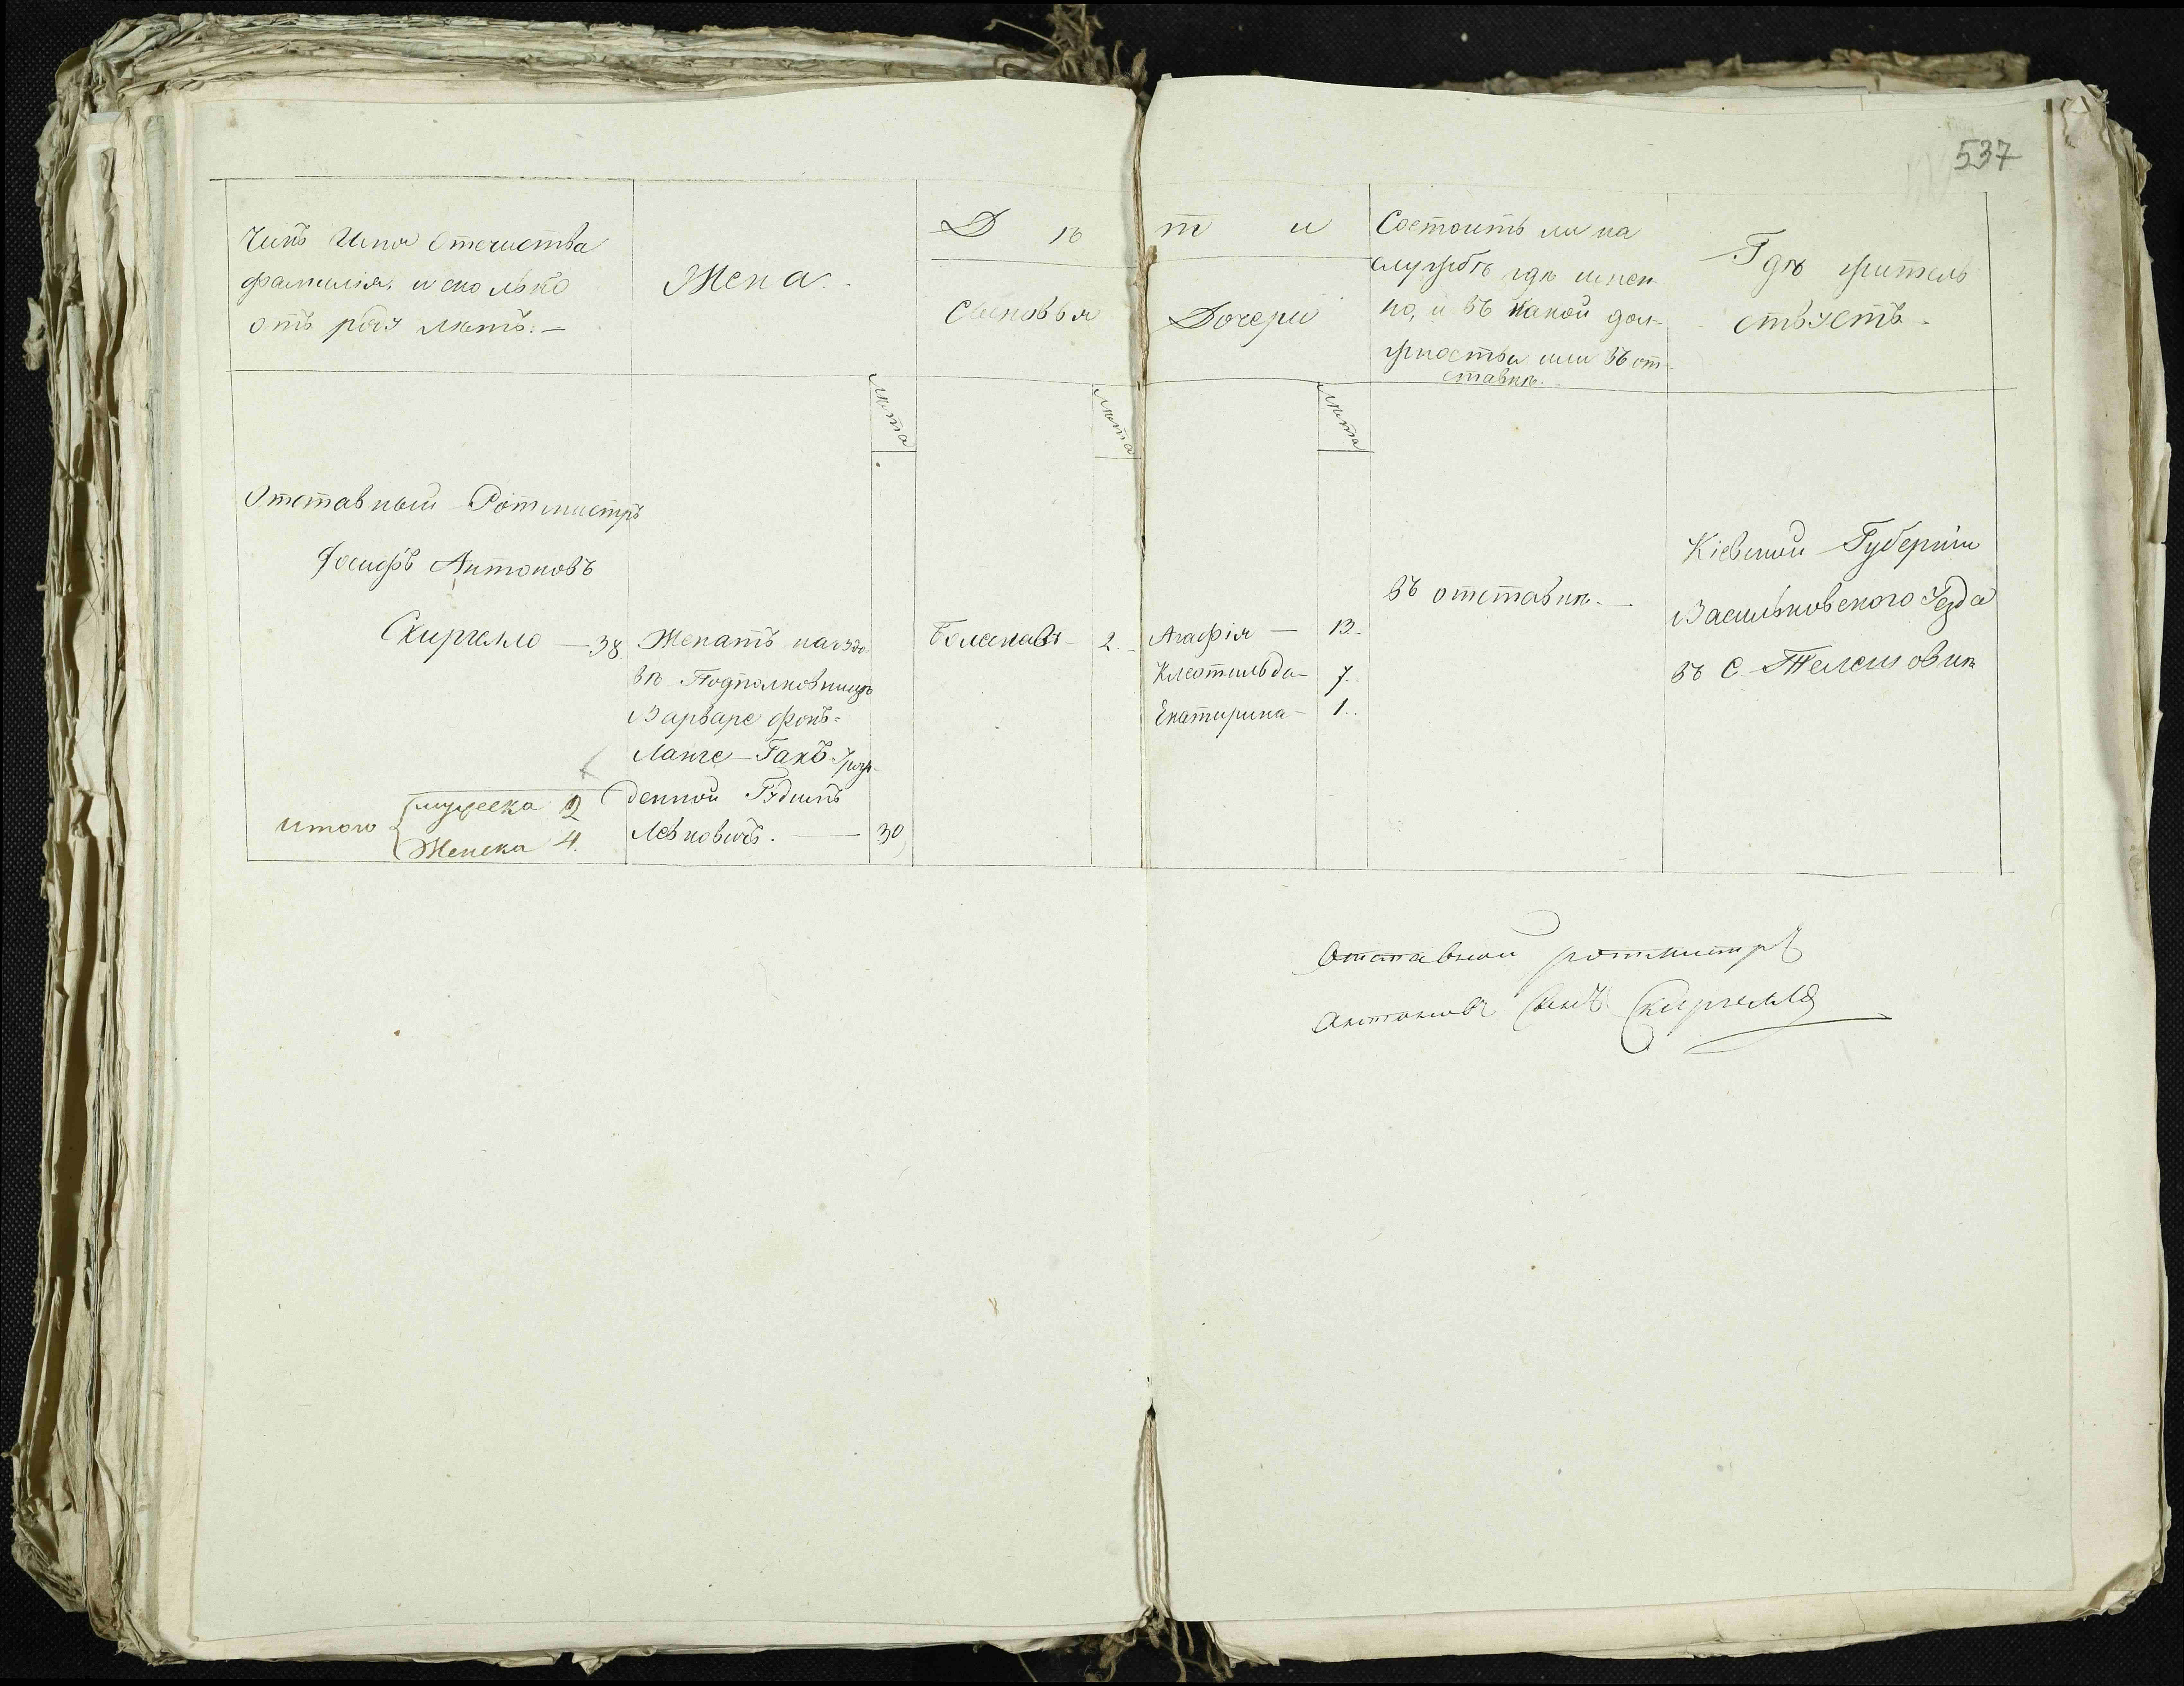 537
Чинъ Имя Отечиства
фамилія, и сколько
отъ роду лѣтъ. —
Жена.
Дѣти
Сыновья
Дочери
Состоитъ ли на
службѣ гдѣ имен-
но, и въ какой дол-
жности или въ от-
ставкѣ.
Гдѣ житель
ствуетъ.
лѣта
лѣта
лѣта
Отставный Ротмистръ
Іосифъ Антоновъ
Скиргело — 38
Женатъ на вдо
вѣ Подполковницѣ
Варваре фонъ=
Ланге-Гакъ Урож-
денной
30
Болеславъ — 2.
Агафія — 13.
Клеотильда — 7.
Екатирина — 1.
въ отставкѣ. —
Кіевской Губерніи
Васильковского Уезда
въ С
итого
мужеска 2
Женска 4.
Отставной ротмистръ
Антоновъ Сынъ Скиргелло